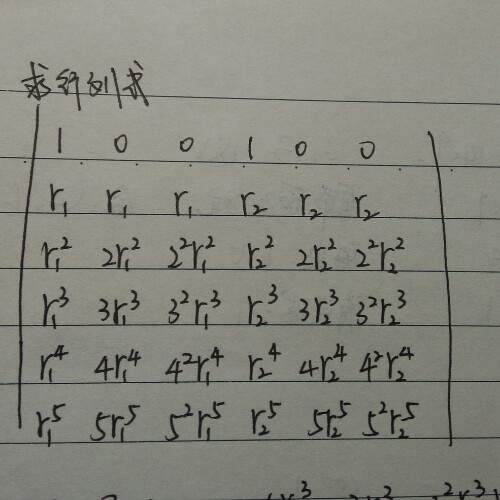 求行列式
1 0 0 1 0 0
r₁ r₁ r₁ r₂ r₂ r₂
r₁² 2r₁² 2²r₁² r₂² 2r₂² 2²r₂²
r₁³ 3r₁³ 3²r₁³ r₂³ 3r₂³ 3²r₂³
r₁⁴ 4r₁⁴ 4²r₁⁴ r₂⁴ 4r₂⁴ 4²r₂⁴
r₁⁵ 5r₁⁵ 5²r₁⁵ r₂⁵ 5r₂⁵ 5²r₂⁵